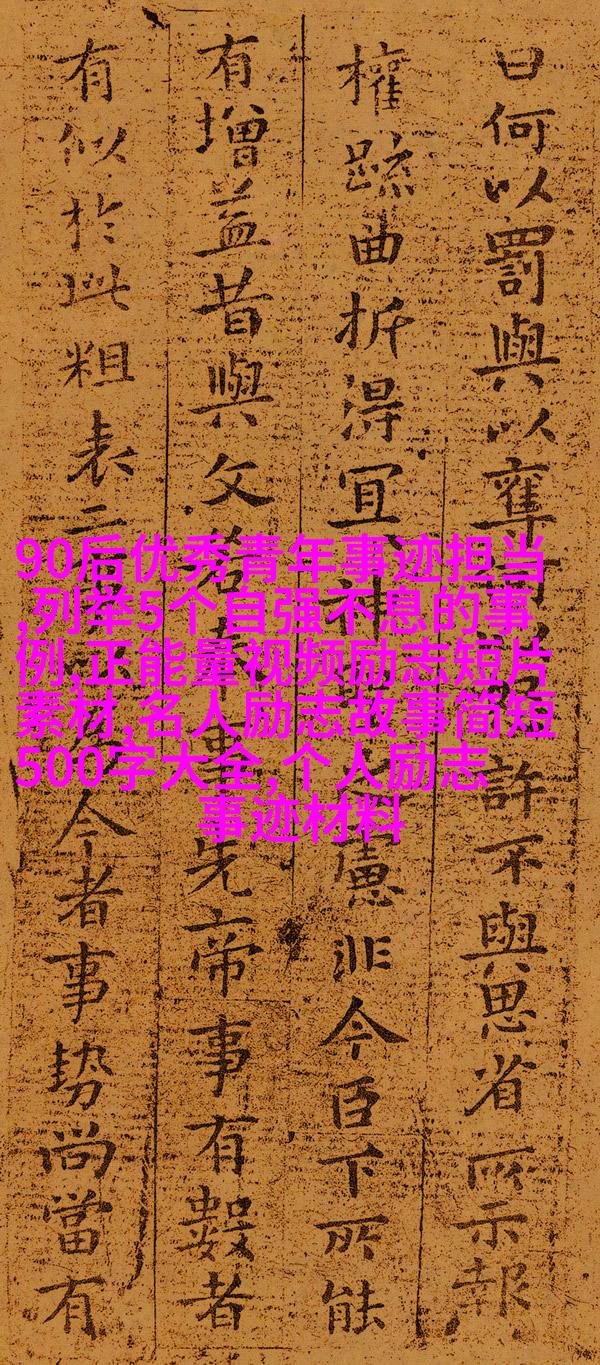 曰何以罰與以奪許不與思省所示報
權疏曲折得宜神慮非今臣下所能
有增益昔與文若事先帝事有數者
有似於此粗表二今者事勢尚當有
90后优秀青年事迹担当
,列举5个自强不息的事
例,正能量视频励志短片
素材,名人励志故事简短
500字大全,个人励志
事迹材料